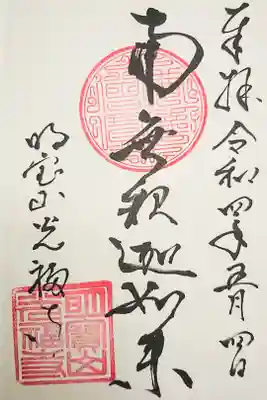 奉拝 令和四年五月四日
南無釈迦如来
明宝山光福寺